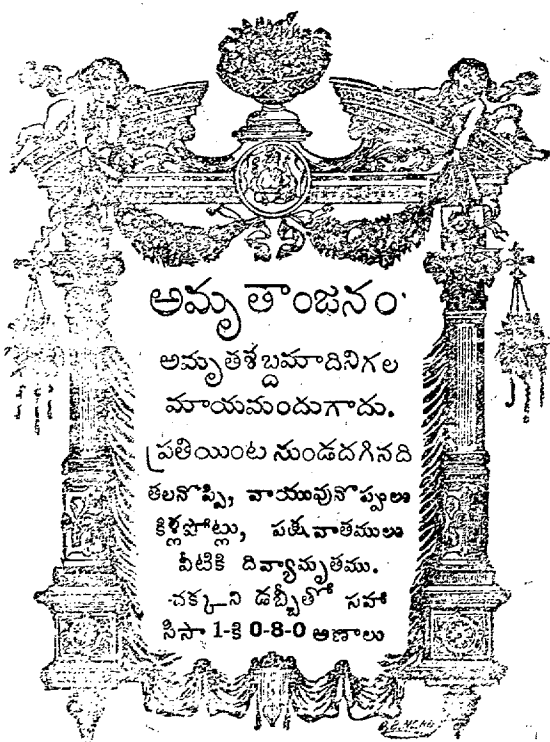 శ్రీ
అమృతాంజనం
అమృతశబ్దమాదినిగల
మాయమందుగాదు.
ప్రతియింట నుండదగినది
తలనొప్పి, వాయువునొప్పులు
కీళ్లపోట్లు, పక్షవాతములు
వీటికి దివ్యామృతము.
చక్కని డబ్బీతో సహా
సీసా 1-కి 0-8-0 అణాలు